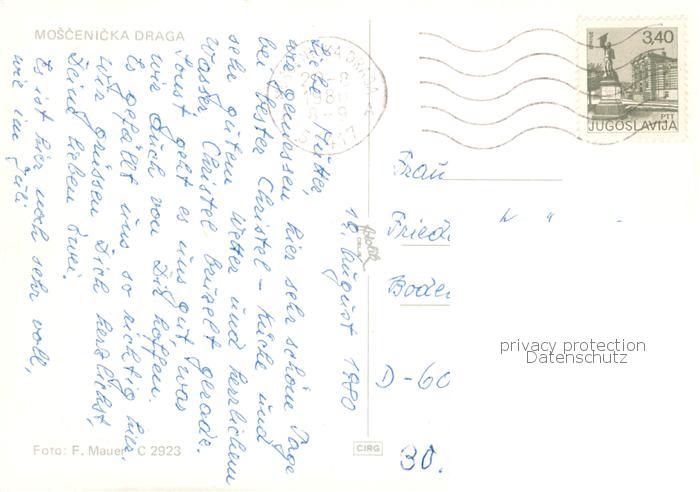 MOŠČENIČKA DRAGA
16. August 1980
Liebe Mutter,
wir geniessen hier sehr schöne Tage
bei bester Christel-Küche und
sehr gutem Wetter und herrlichem
Wasser. Christel brüzelt gerade.
Sonst geht es uns gut, was
wir auch von Dir hoffen.
Es gefällt uns so richtig hier.
Wir grüssen Dich herzlichst,
Deine lieben zwei.
Es ist hier noch sehr voll,
wie im Juli
Foto: F. Mauer C 2923
CIRG
3,40
PTT
JUGOSLAVIJA
Frau
Fried
Boden
D-60
30.
privacy protection
Datenschutz